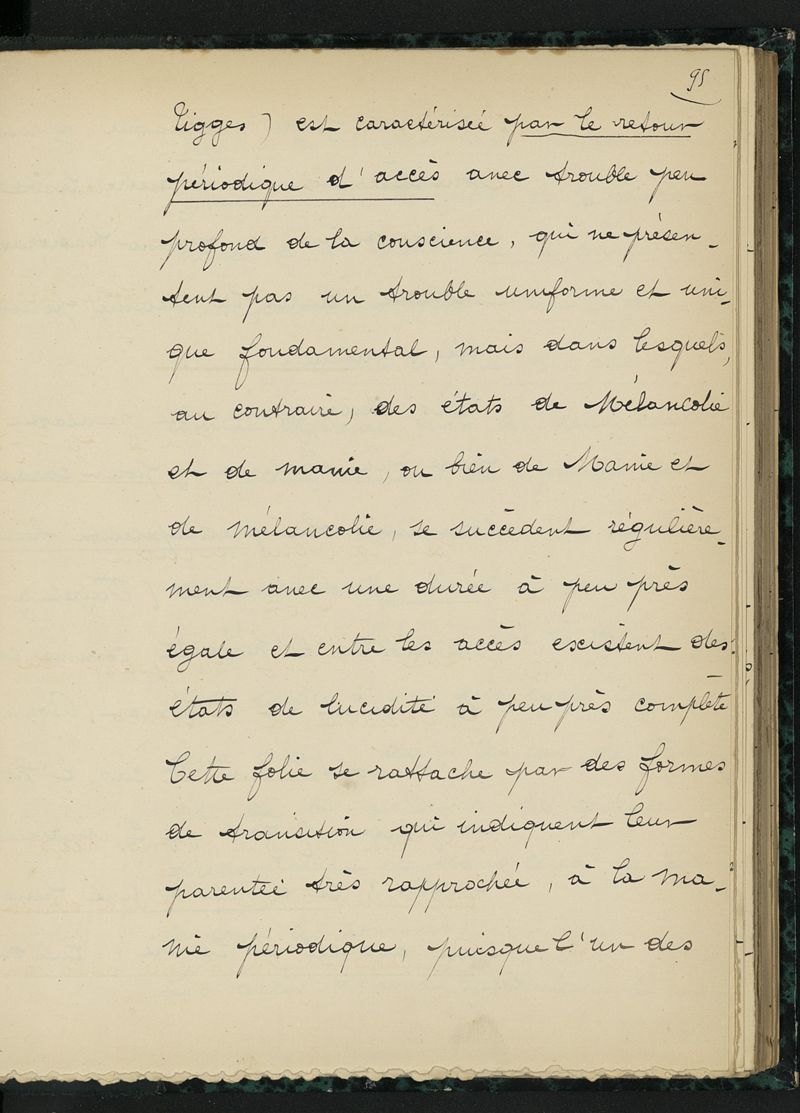 95
Tigges) est caractérisée par le retour
périodique d'accès avec trouble peu
profond de la conscience, qui ne présen-
tent pas un trouble uniforme et uni-
que fondamental, mais dans lesquels,
au contraire, des états de Mélancolie
et de manie, ou bien de Manie et
de mélancolie, se succèdent régulière-
ment avec une durée à peu près
égale et entre les accès existent des
états de lucidité à peu près complète
Cette folie se rattache par des formes
de transition qui indiquent leur
parenteé très rapprochée, à la ma-
nie périodique, puisque l'un des